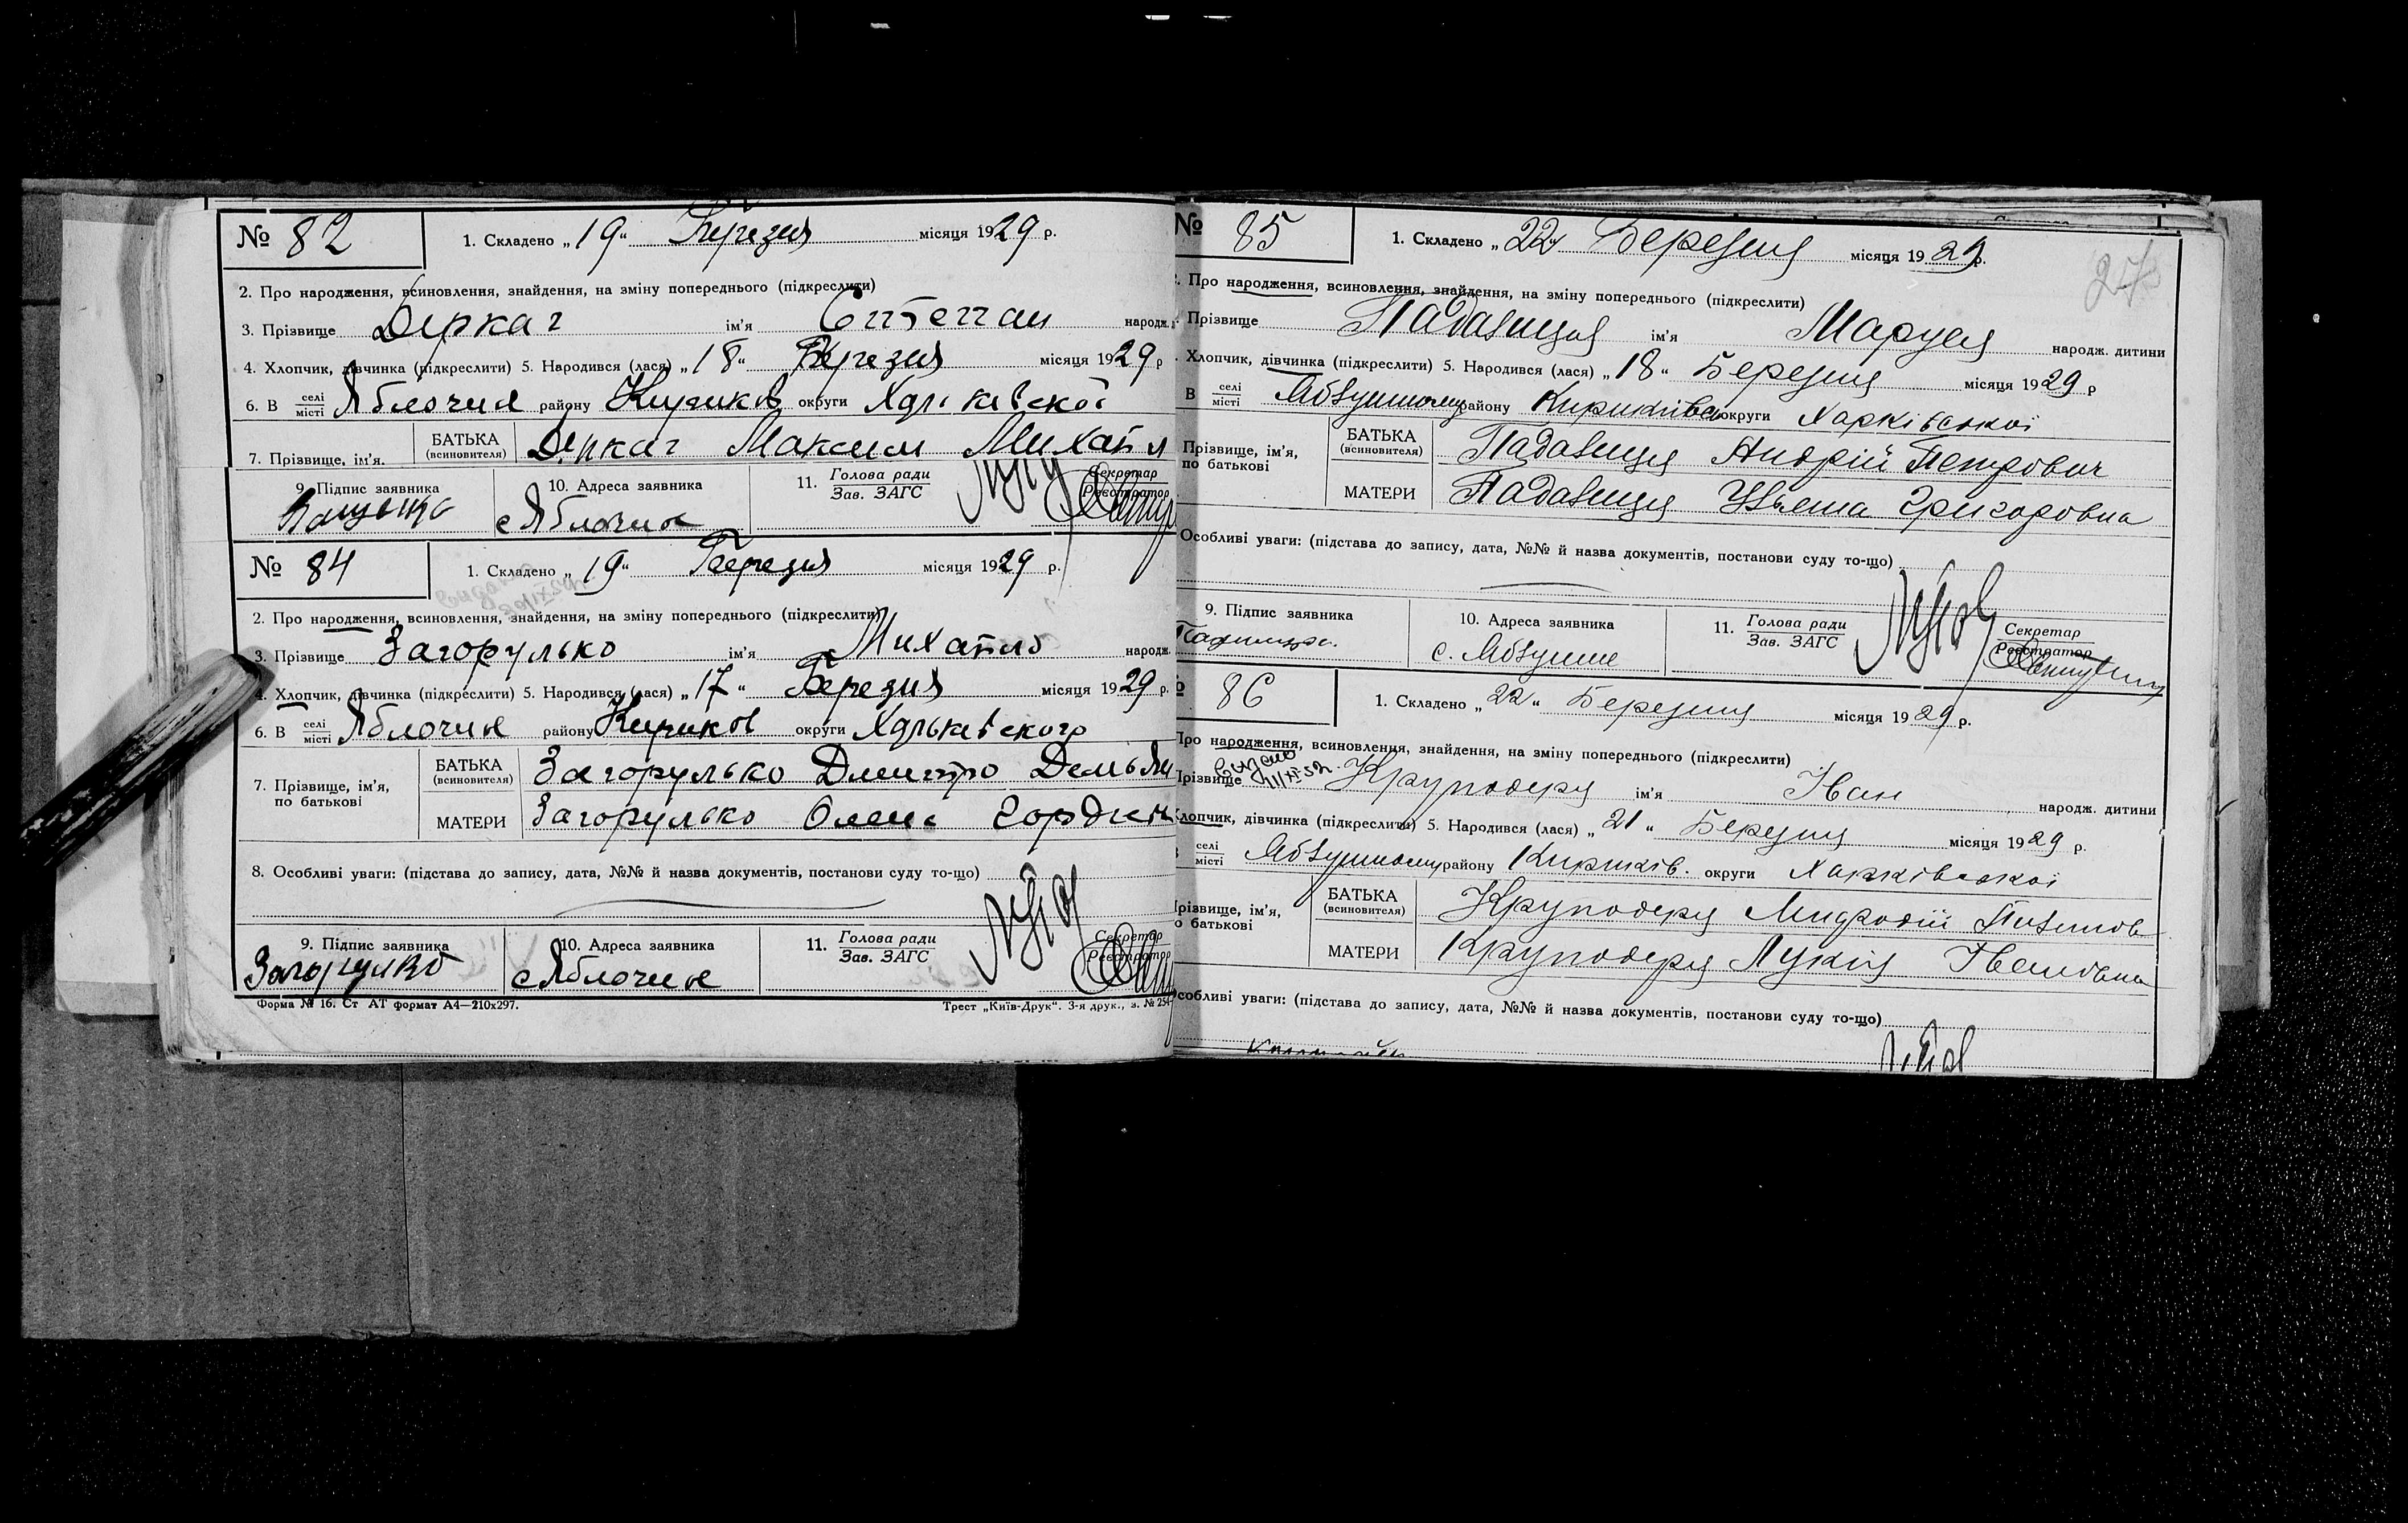 № 82 1. Складено „19“ Березня місяця 1929 р.
2. Про народження, всиновлення, знайдення, на зміну попереднього (підкреслити)
3. Прізвище Деркач ім'я Степан народж.
4. Хлопчик, дівчинка (підкреслити) 5. Народився (лася) „18“ Березня місяця 1929 р
6. В селі місті Яблочне району Кириков округи Харківської
7. Прізвище, ім'я. БАТЬКА (всиновителя) Деркач Максим Михайл
9. Підпис заявника 10. Адреса заявника с Яблочне 11. Голова ради Зав. ЗАГС Секретар Реєстратор
№ 84 1. Складено „19“ Березня місяця 1929 р.
2. Про народження, всиновлення, знайдення, на зміну попереднього (підкреслити)
3. Прізвище Загорулько ім'я Михайло народж.
4. Хлопчик, дівчинка (підкреслити) 5. Народився (лася) „17“ Березня місяця 1929 р.
6. В селі місті Яблочне району Кириков округи Харьківского
7. Прізвище, ім'я, по батькові БАТЬКА (всиновителя) Загорулько Дмитро Демьян
МАТЕРИ Загорулько Олена
8. Особливі уваги: (підстава до запису, дата, №№ й назва документів, постанови суду то-що)
9. Підпис заявника Загорулко 10. Адреса заявника с Яблочне 11. Голова ради Зав. ЗАГС Секретар Реєстратор
Форма № 16. Ст АТ формат А4—210x297. Трест „Київ-Друк“. 3-я друк., з. № 254
№ 85 1. Складено „22“ Березня місяця 1929 р.
Про народження, всиновлення, знайдення, на зміну попереднього (підкреслити)
Прізвище Падалиця ім'я Маруся народж. дитини
Хлопчик, дівчинка (підкреслити) 5. Народився (лася) „18“ Березня місяця 1929 р
В селі місті Яблушному району округи Харківської
Прізвище, ім'я, по батькові БАТЬКА (всиновителя) Падалиця Андрій Петрович
МАТЕРИ Падалиця Ульяна Григоровна
Особливі уваги: (підстава до запису, дата, №№ й назва документів, постанови суду то-що)
9. Підпис заявника 10. Адреса заявника с. Яблушне 11. Голова ради Зав. ЗАГС Секретар Реєстратор
86 1. Складено „22“ Березня місяця 1929 р.
Про народження, всиновлення, знайдення, на зміну попереднього (підкреслити)
Прізвище Круподеря ім'я Іван народж. дитини
Хлопчик, дівчинка (підкреслити) 5. Народився (лася) „21“ Березня місяця 1929 р.
селі місті Яблушному району Кириків. округи Харківської
Прізвище, ім'я, по батькові БАТЬКА (всиновителя) Круподеря
МАТЕРИ Круподеря Лукія Івановна
Особливі уваги: (підстава до запису, дата, №№ й назва документів, постанови суду то-що)